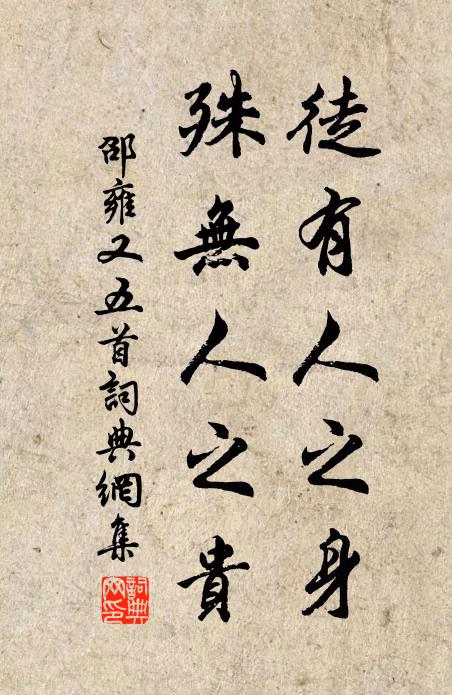 徒有人之身
殊無人之貴
邵雍又五首詞典網集
詞典网印